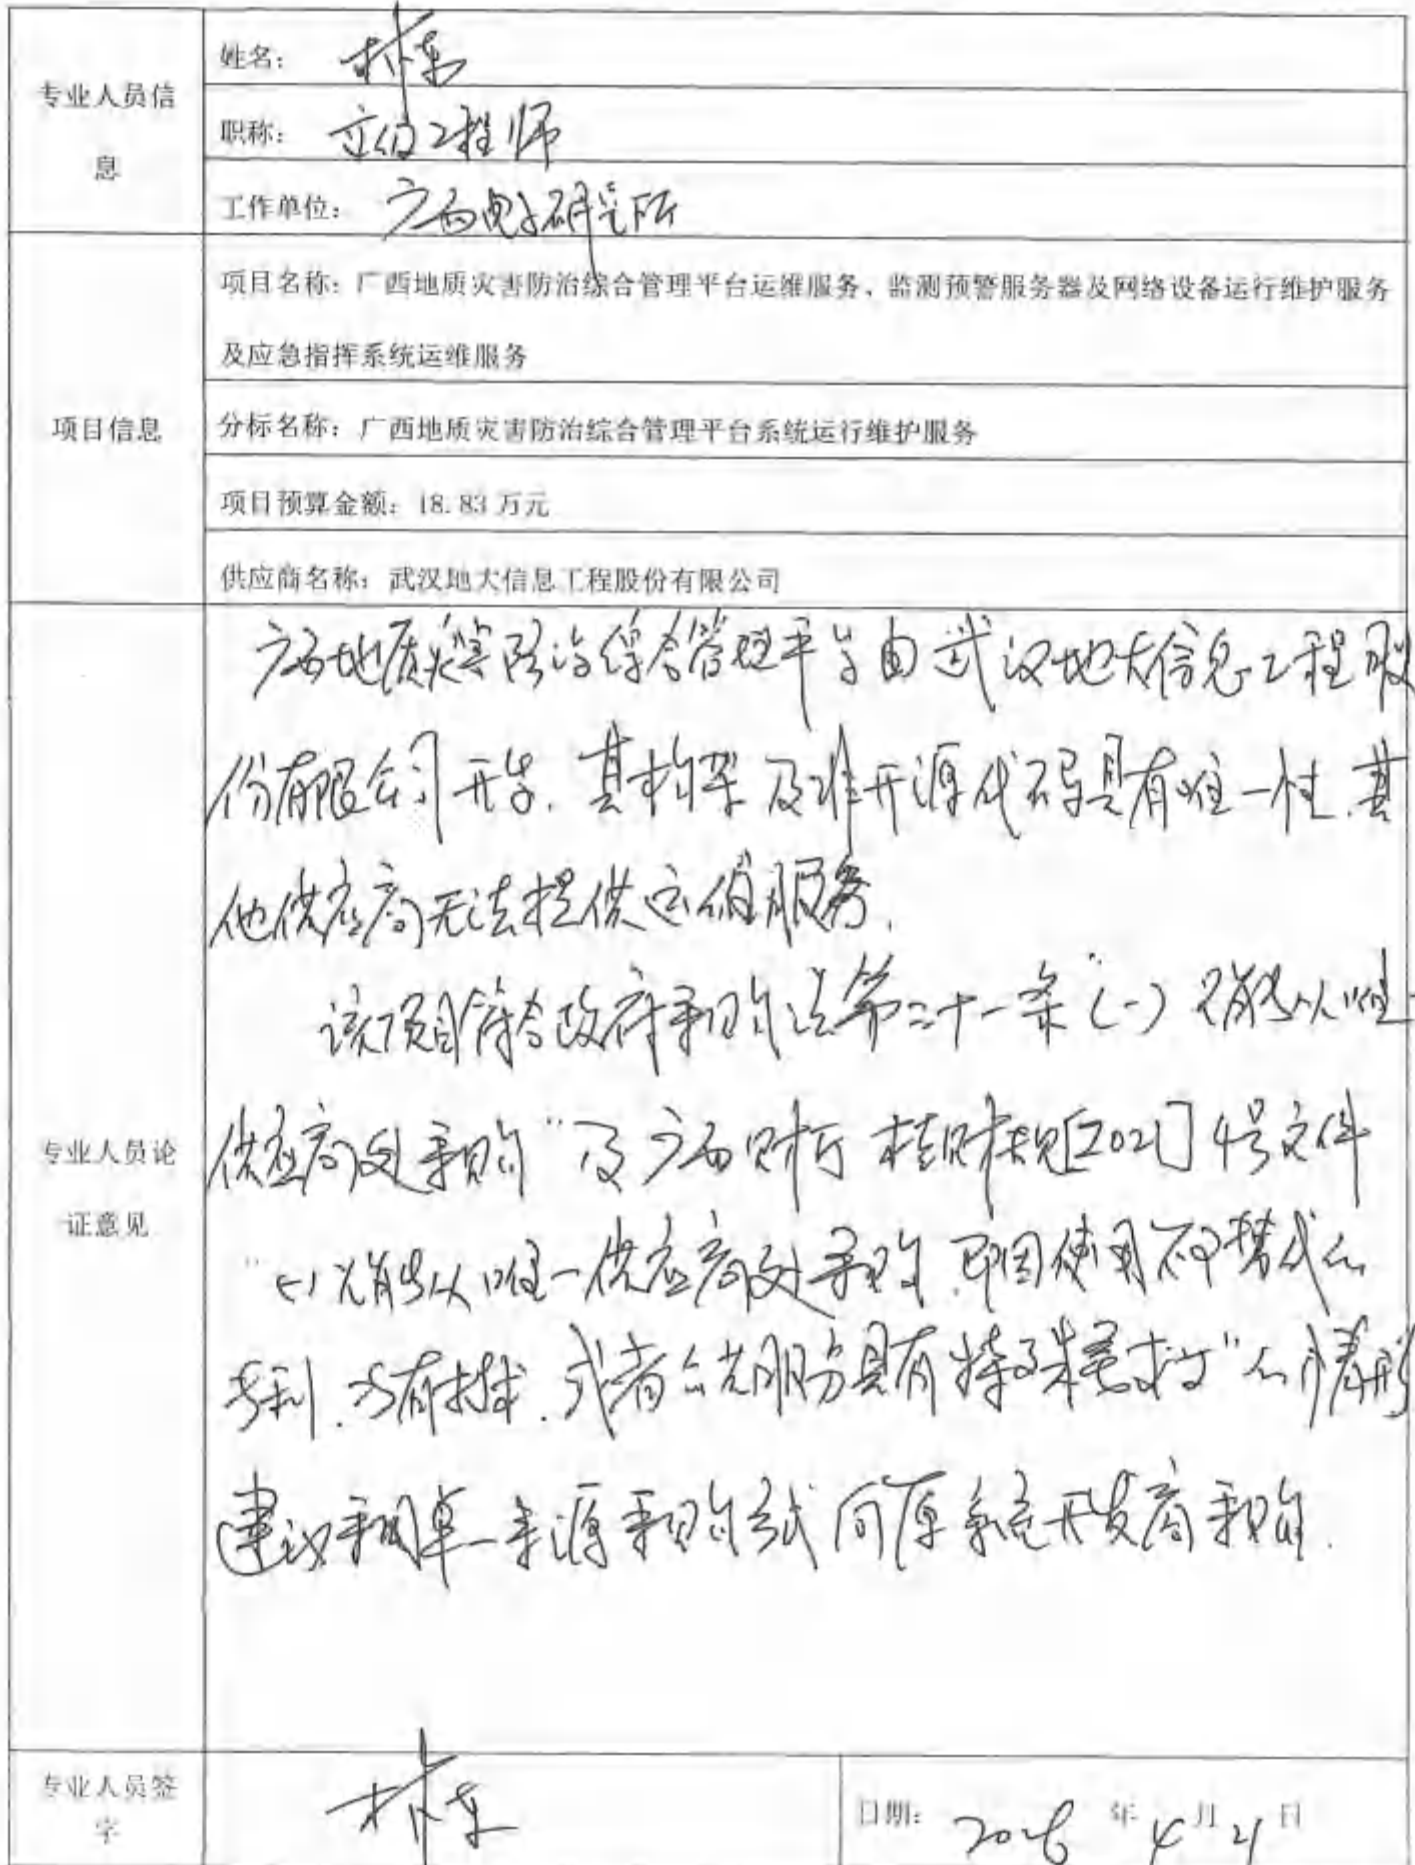 专业人员信
息
姓名：林东
职称：高级工程师
工作单位：广西电子研究所
项目信息
项目名称：广西地质灾害防治综合管理平台运维服务、监测预警服务器及网络设备运行维护服务
及应急指挥系统运维服务
分标名称：广西地质灾害防治综合管理平台系统运行维护服务
项目预算金额：18.83 万元
供应商名称：武汉地大信息工程股份有限公司
专业人员论
证意见
广西地质灾害防治综合管理平台由武汉地大信息工程股
份有限公司开发，其构架及非开源代码具有唯一性，其
他供应商无法提供运维服务。
该项目符合政府采购法第三十一条“（一）只能从唯一
供应商处采购”及广西财厅 桂财规[2021]4号文件
“（一）只能从唯一供应商处采购，即因使用不可替代的
专利、专有技术，或者公共服务具有特殊要求的”的情形
建议采用单一来源采购方式向原系统开发商采购。
专业人员签
字
林东
日期： 年4月21日